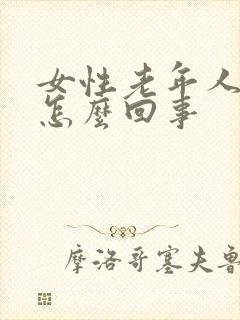 女性老年人
怎麼回事
摩洛哥塞夫魯